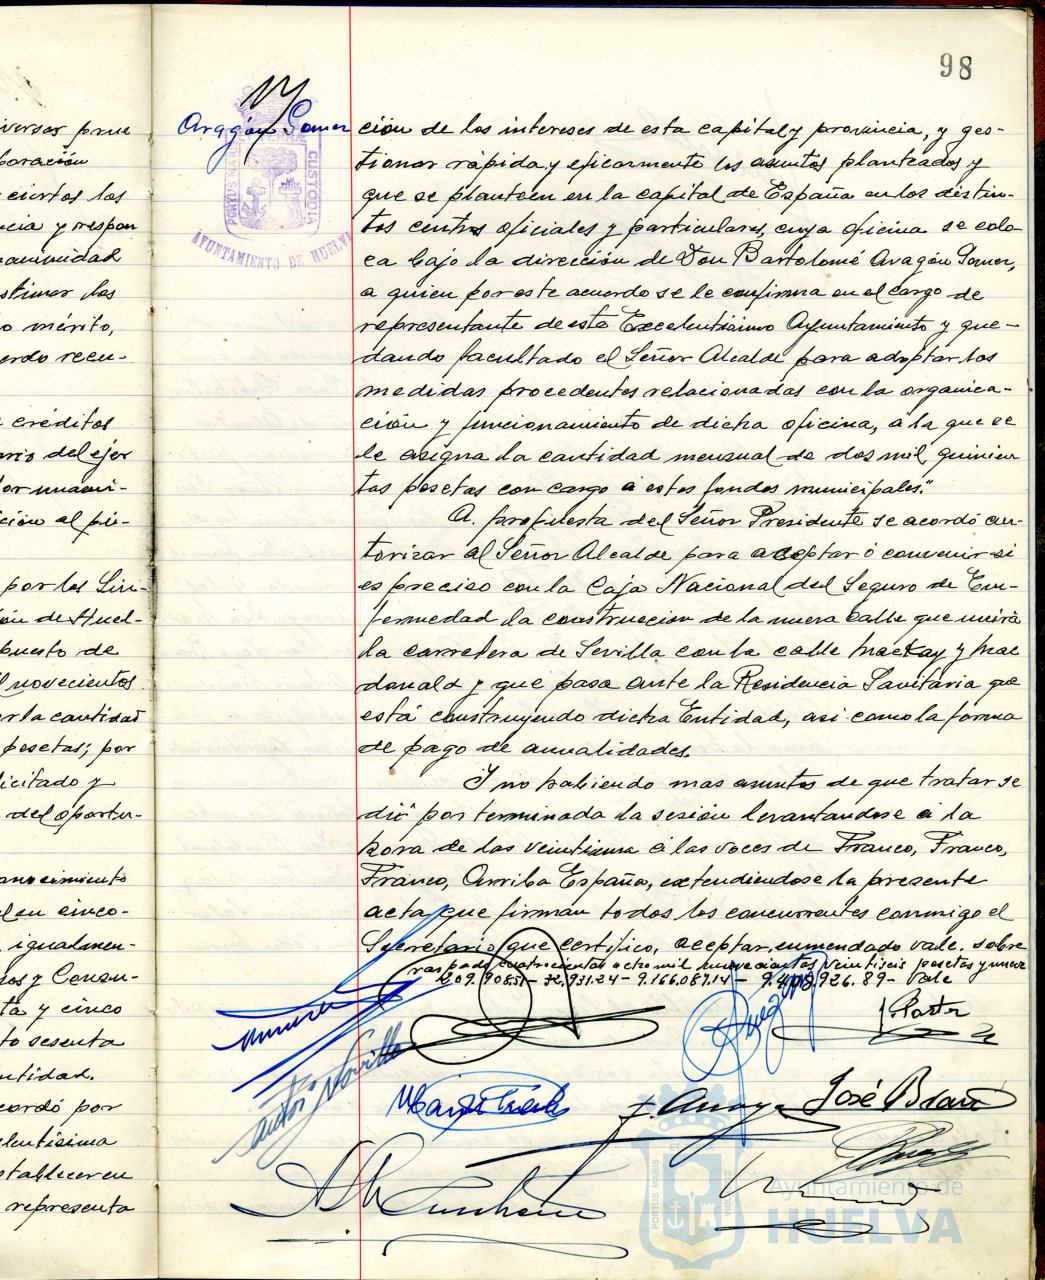 98
Aragón Gomez
PORTUS MARIS
CUSTODIA
AYUNTAMIENTO DE HUELVA
boración
ciertos los
ncia y respon
stimar los
o mérito,
erdo recu-
créditos
ario del ejer
por los Sin-
ión de Huel-
puesto de
novecientos
er la cantidad
pesetas; por
licitado y
del oportu-
igualmen-
ta y cinco
to sesenta
ntidad.
cordó por
establecer en
representa
ción de los intereses de esta capital y provincia, y ges-
tionar rápida y eficazmente los asuntos planteados y
que se planteen en la capital de España en los distin-
tos centros oficiales y particulares, cuya oficina se colo
ca bajo la dirección de Don Bartolomé Aragón Gomez,
a quien por este acuerdo se le confirma en el cargo de
representante de este Excelentísimo Ayuntamiento y que-
dando facultado el Señor Alcalde para adoptar las
medidas procedentes relacionadas con la organiza-
ción y funcionamiento de dicha oficina, á la que se
le asigna la cantidad mensual de dos mil quinien
tas pesetas con cargo á estos fondos municipales."
A propuesta del Señor Presidente se acordó au-
torizar al Señor Alcalde para aceptar ó convenir si
es preciso con la Caja Nacional del Seguro de En-
fermedad la construccion de la nueva calle que unirá
la carretera de Sevilla con la calle Mackay y Mac
donald y que pasa ante la Residencia Sanitaria que
está construyendo dicha Entidad, asi como la forma
de pago de anualidades.
Y no habiendo mas asuntos de que tratar se
dió por terminada la sesión levantandose á la
hora de las veintiuna á las voces de Franco, Franco,
Franco, Arriba España, extendiendose la presente
acta que firman todos los concurrentes conmigo el
Secretario que certifico, aceptar, enmendado vale. sobre
raspado cuatrocientas ocho mil novecientas veintiseis pesetas y nueve
209.908,51 - 32,931.24 - 9.166.087.14 - 9.408.926.89 - vale
J. Anaya
José
Ayuntamiento de
HUELVA